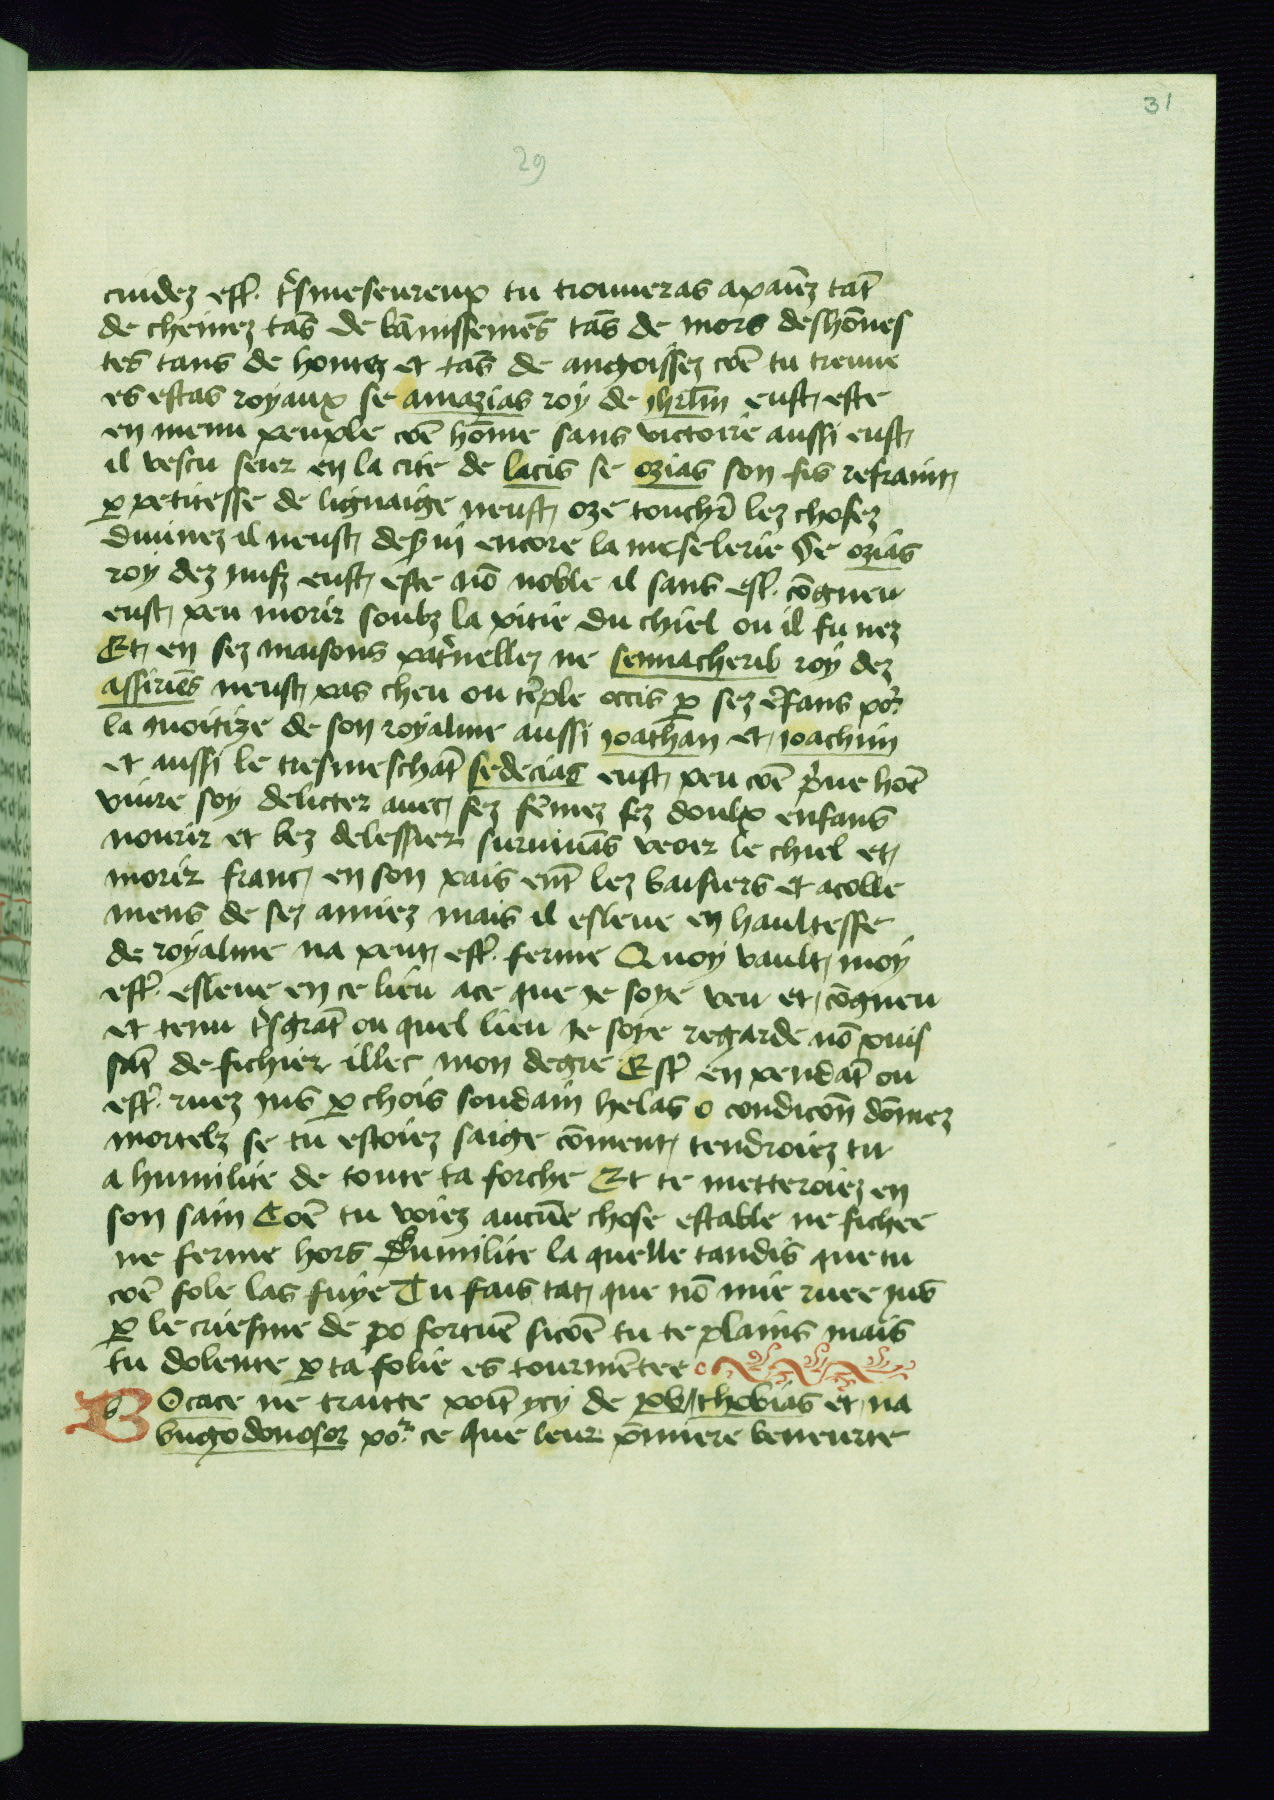 31
29
cuidez estͬ. tͬsmeseureux tu trouueras apaiñez tat̄
de cheinez tas̄ de bānissemēs tas̄ de mors deshōnes
tes tans de hontez et tas̄ de angoissez cōe tu treuue
es estas royaux se amazias roy de jhrlm̄ eust este
en menu peuple cōe hōme sans victoire aussi eust
il vescu seur en la cite de lacis se ozias son fis refraint
ꝑ petitesse de lignaige neust oze touchr̄ lez chosez
diuinez il neust desꝑui encore la meselerie Se ozias
roy dez juifz eust este nō noble il sans estͬ. cōgneu
eust peu morir soubz la pitie du chiel ou il fu nez
Et en sez maisons patͬnellez ne sennacherib roy dez
assiriēs neust pas cheu ou tēple occis ꝑ sez ēfans poͬ
la quoitize de son royalme aussi joathan et joachim
et aussi le tresmeschat̄ sedecias eust peu cōe pͥue hōe
viure soy delicter auec sez fēmez sez doulx enfans
nourir et lez delessier suruiuās veoir le chiel et
morir franc en son pais ent̄ lez baisiers et acolle
mens de sez amiez mais il esleue en haultesse
de royalme na peut estͬ. ferme Quoy vault moy
estͬ. esleue en ce lieu ace que je soye veu et cōgneu
et tenu tͬsgrat̄ ou quel lieu je soye regarde nō puis
sat̄ de fichier illec mon degre Estͬ en pendat̄ ou
estͬ. ruez jus ꝑ chois soudain helas o condicōn dōmez
mortelz se tu estoiez saige cōment tendroiez tu
a humilite de toute ta forche Et te metteroiez en
son sain Cōe tu voiez aucūe chose estable ne fichee
ne ferme hors dhumilite la quelle tandis que tu
cōe fole las fuye Tu fais tat que nō mie ruee jus
ꝑ le criesme de po fortūe sicōe tu te plains mais
tu dolente ꝑ ta folie es tourmētee
Bocace ne traitte poit̄ ycy de pol thobias et na
bugodonosor poͬ ce que leur pͥmiere beneurte